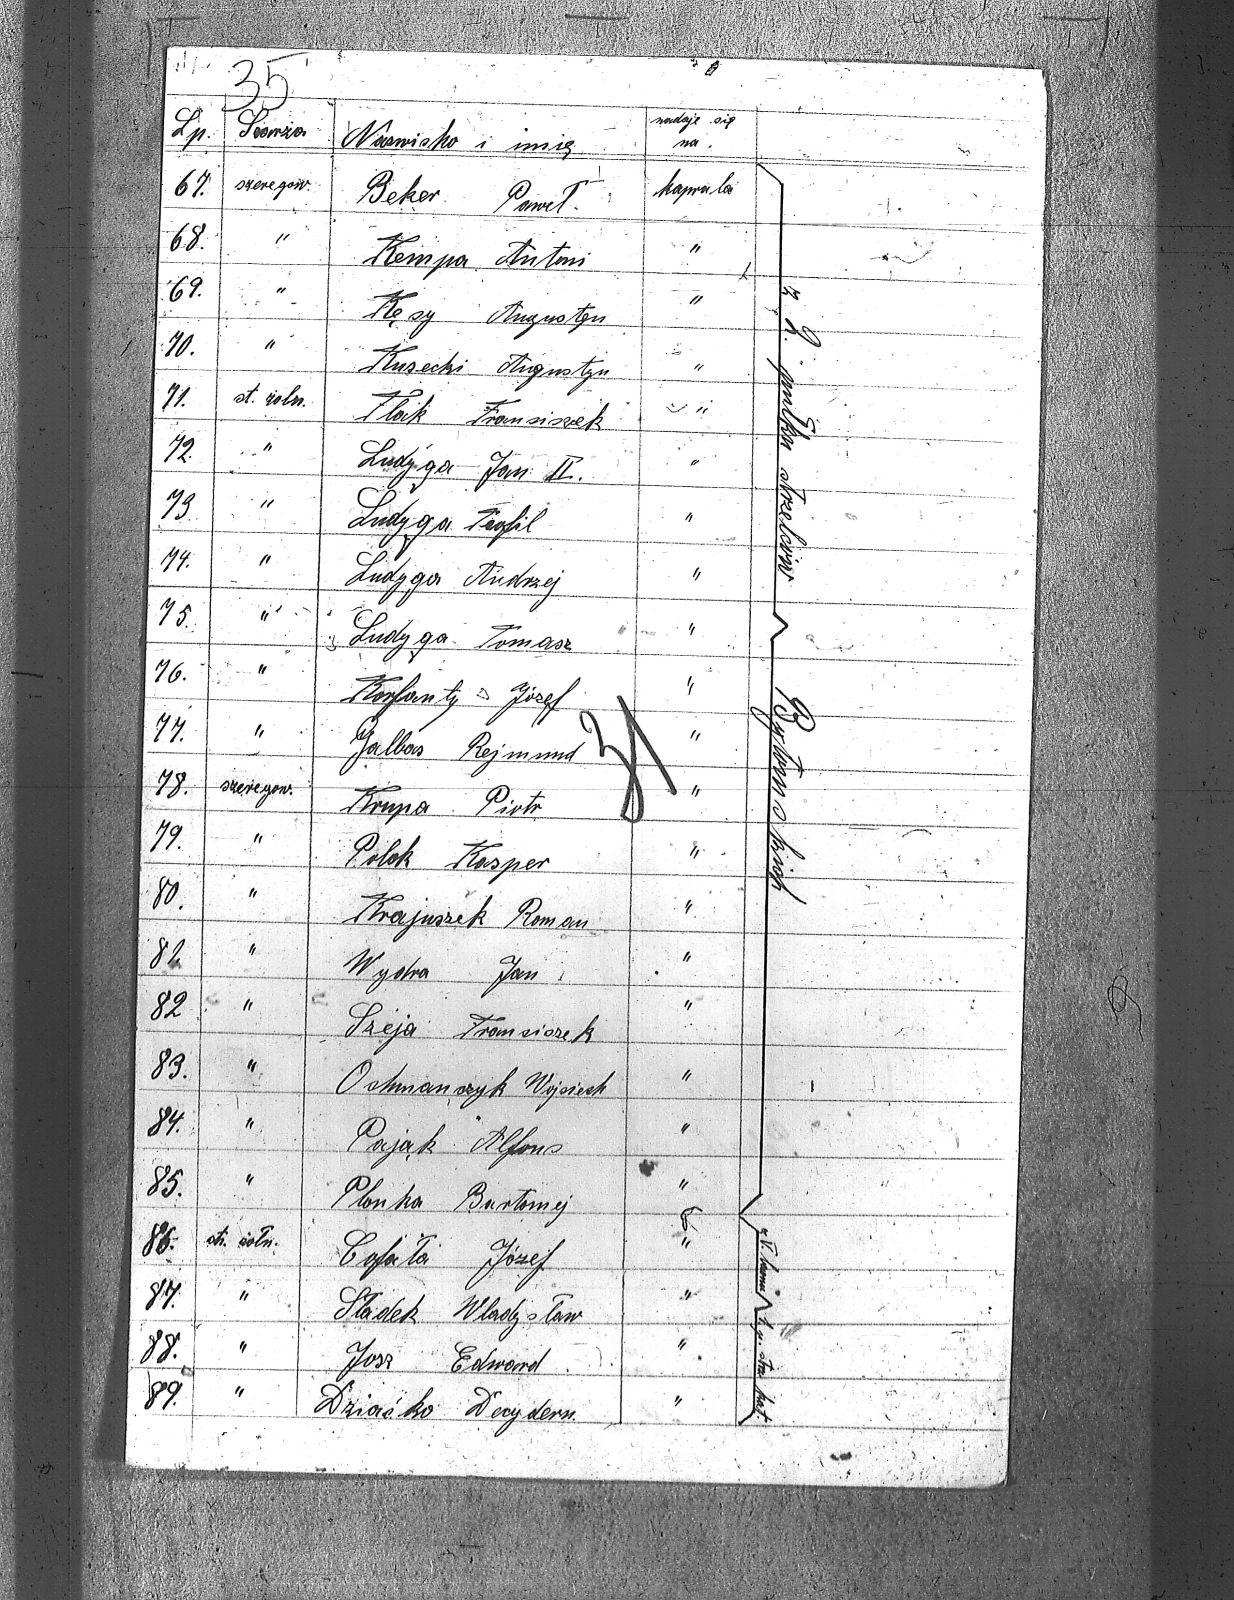 35
Lp. Szarża Nazwisko i imię nadaje się na.
67. szeregow. Beker Paweł. kaprala
68. " Kempa Antoni "
69. " Kęsy Augustyn "
70. " Kusecki Augustyn "
71. st. żołn. Flak Fransiszek "
72. " Ludyga Jan II. "
73 " Ludyga Teofil "
74. " Ludyga Andrzej "
75. " Ludyga Tomasz "
76. " Korfanty Józef "
77. " Jalbas Rejmund "
78. szeregow. Krupa Piotr "
79. " Polok Kasper "
80. " Krajuszek Roman "
81 " Wydra Jan "
82 " Szeja Fransiszek "
83. " Ochmanczyk Wojsiech "
84. " Pająk Alfons "
85. " Plonka Bartomej "
86. st. żołn. Cofała Józef "
87. " Sładek Władysław "
88. " Josz Edward "
89. " Dziaćko Dezydern. "
z 2. pułku strzelców
Bytomskich